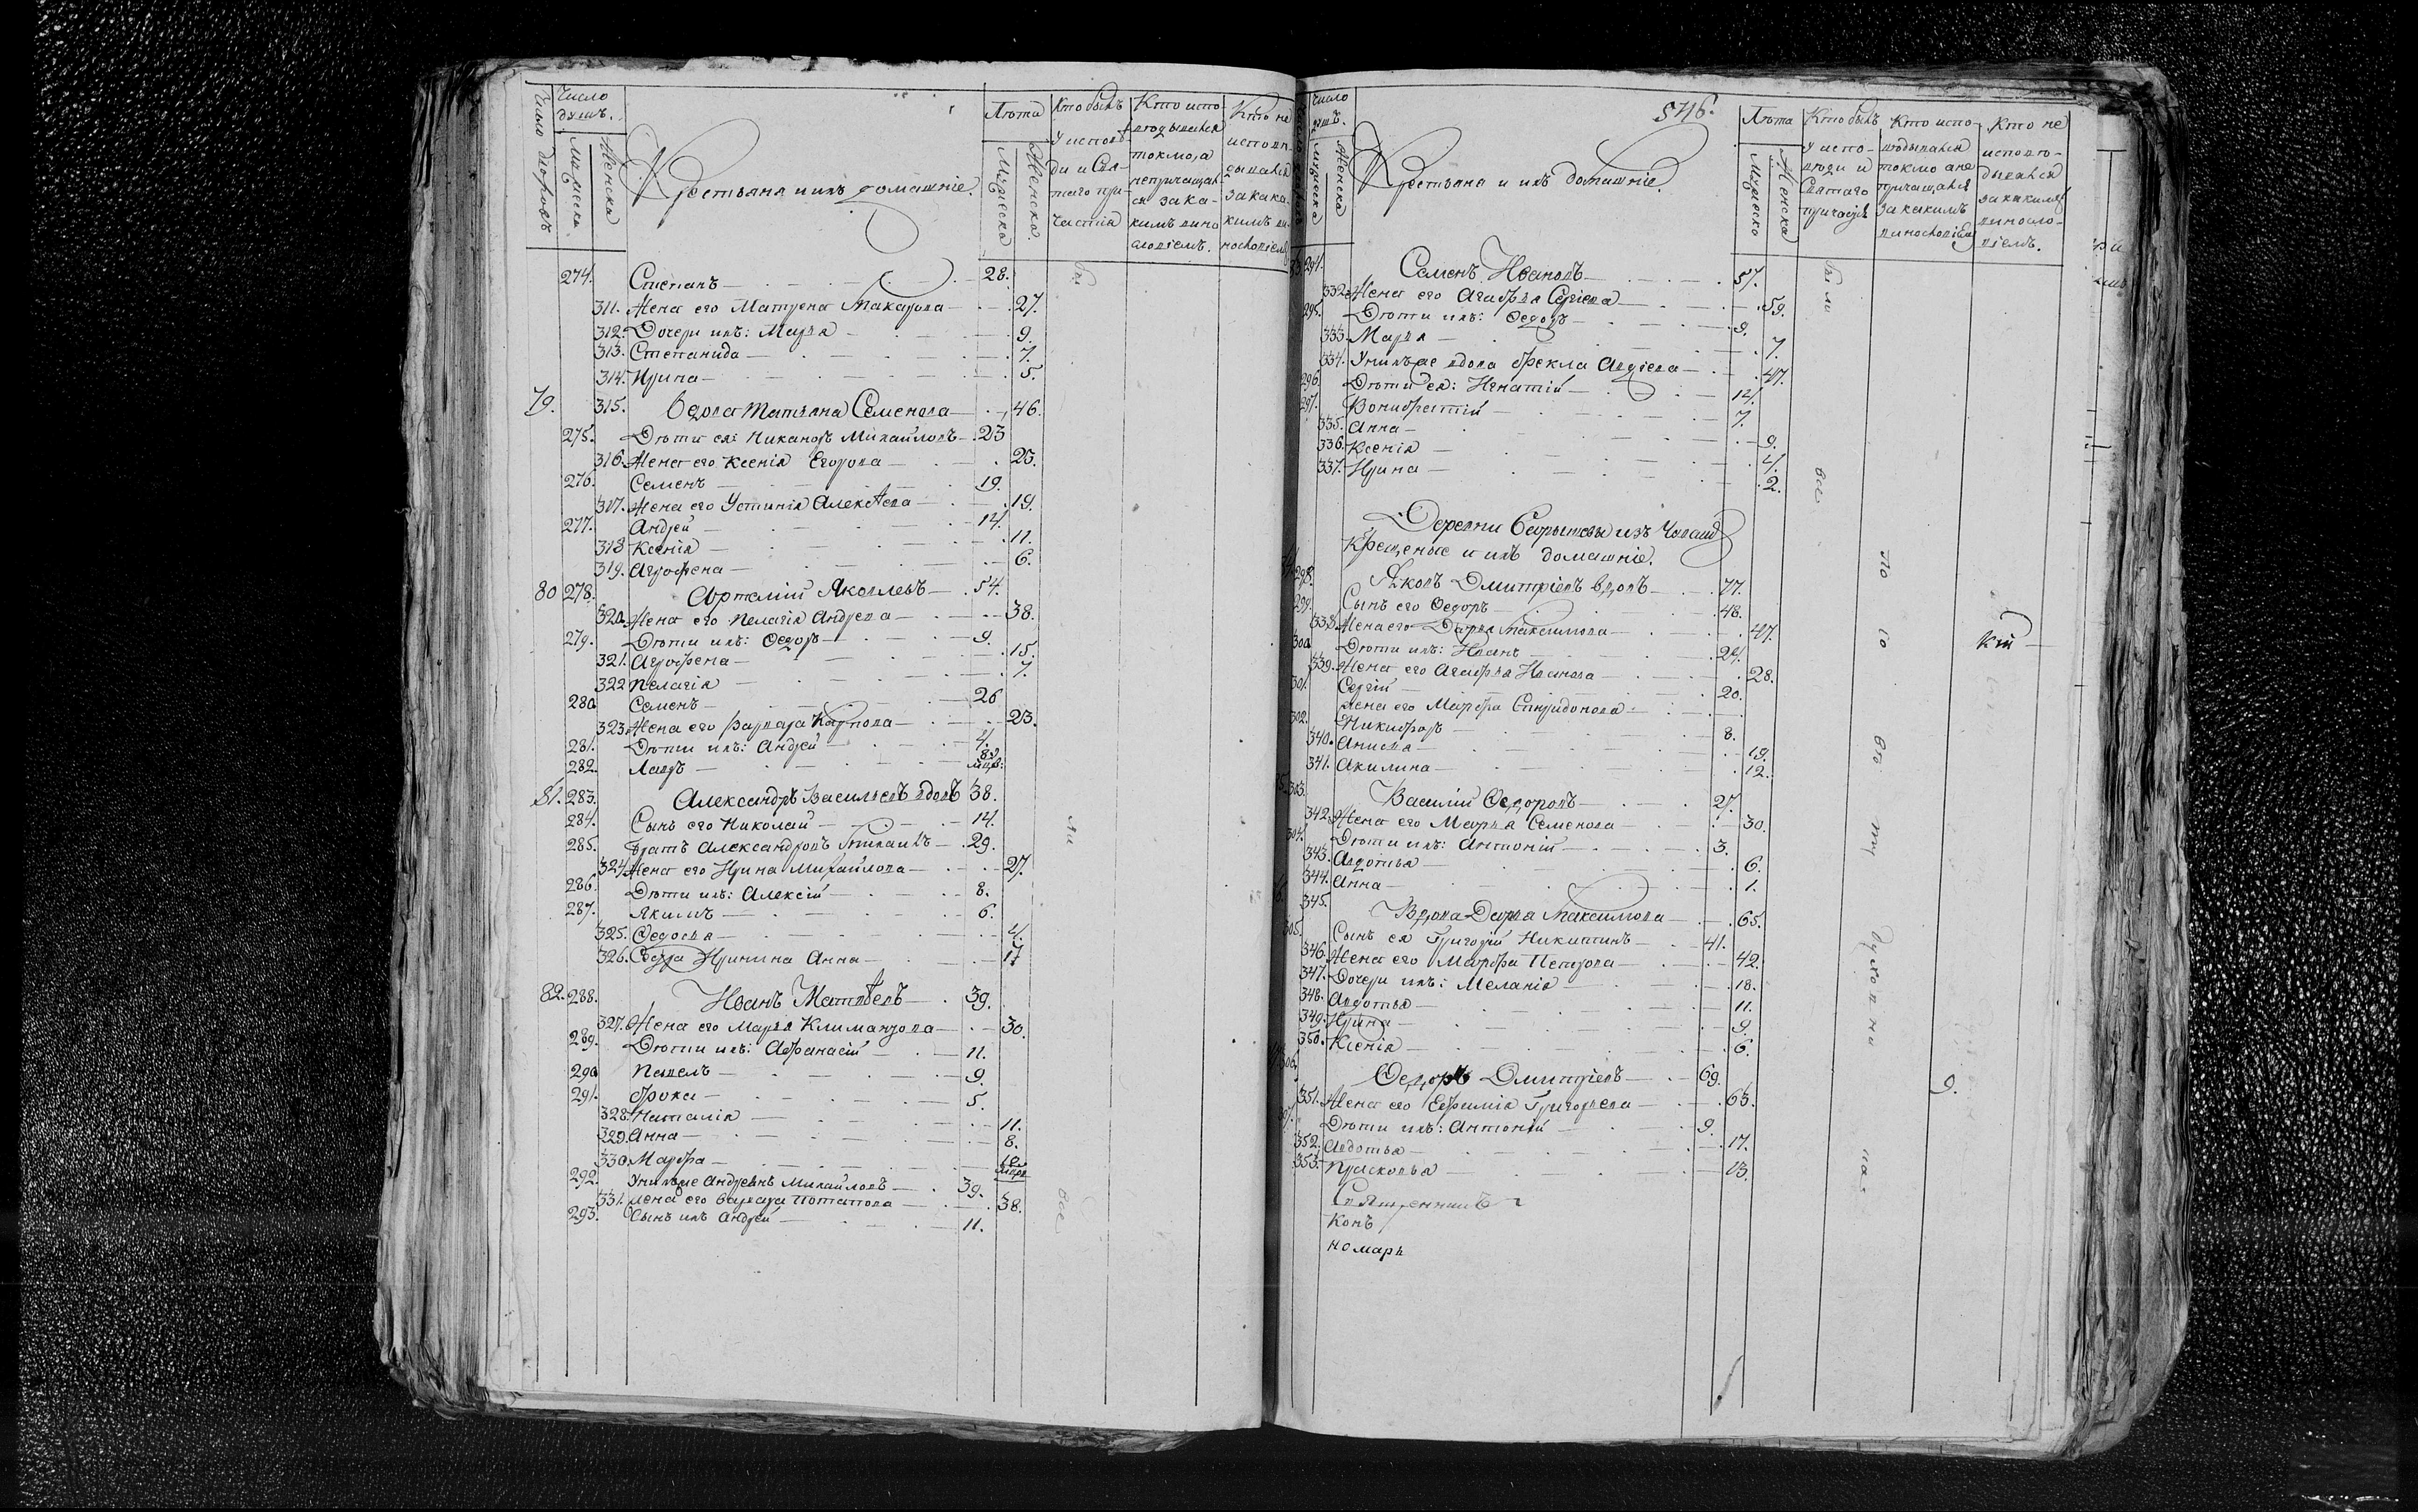 Число дворовъ
Число душъ.
Мужеска.
Женска
Крестьяна и ихъ домашнiе.
Лѣта
Мужеска
Женска.
Кто былъ у исповѣди и Святаго причастiя
Кто исповѣдывался токмо, а непричащался за какимъ винословiемъ.
Кто не исповѣдывался за какимъ винословiемъ
274. Степанъ 28.
311. Жена его Матрена Макарова 27.
312. Дочери ихъ: Марья 9.
313. Степанида 7.
314. Ирина 5.
79. 315. Вдова Татьяна Семенова 46.
275. Дѣти ея: Никаноръ Михайловъ 23
316. Жена его Ксенiя Егорова 23.
276. Семенъ 19.
317. Жена его Устинiя Алексѣева 19.
277. Андрей 14.
318 Ксенiя 11.
319. Агрофена 6.
80 278. Артамiй Яковлевъ 54.
320. Жена его Пелагiя Андреева 38.
279. Дѣти ихъ: Ѳедоръ 9.
321. Агрофена 15.
322 Пелагiя 7.
280 Семенъ 26
323. Жена его Варвара Карпова 23.
281. Дѣти ихъ: Андрей 4.
282. Лавръ
81. 283. Александръ Васильевъ вдовъ 38.
284. Сынъ его Николай 14.
285. Братъ Александровъ Михаилъ 29.
324. Жена его Ирина Михайлова 27.
286. Дѣти ихъ: Алексiй 8.
287. Якимъ 6.
325. Ѳедосья 4.
326. Сестра Иринина Анна 17
82. 288. Иванъ Матвѣевъ 39.
327. Жена его Марья Климантова 30.
289. Дѣти ихъ: Афанасiй 11.
290 Павелъ 9.
291. Фока 5.
328. Наталiя 11.
329. Анна 8.
330. Марфа
292. У нихъ же Андреянъ Михайловъ 39.
331. Жена его Варвара Потапова 38.
293. Сынъ ихъ Андрей 11.
бы
ли
все
Число душъ.
Мужеска
Женска
546.
Крестьяна и ихъ домашнiе.
Лѣта
Мужеско
Женска
Кто былъ у исповѣди и Святаго причастiя
Кто исповѣдывался токмо а не причащался за какимъ винословiемъ
Кто не исповѣдывался за какимъ винословiемъ.
294. Семенъ Ивановъ 57.
332. Жена его Агафья Сергiева 59.
295. Дѣти ихъ: Ѳедоръ 9.
333. Марья 7.
334. У нихъ же вдова Фекла Авдiева 47.
296. Дѣти ея: Игнатiй 14.
297. Вонифатiй 7.
335. Анна 9.
336. Ксенiя 4.
337. Ирина 2.
были
все
Деревни изъ Чуваш
Крещеные и ихъ домашнiе.
298. Яковъ Дмитрiевъ вдовъ 77.
299. Сынъ его Ѳедоръ 48.
338. Жена его Дарья Максимова 47.
300. Дѣти ихъ: Иванъ 24.
339. Жена его Агафья Иванова 28.
301. Сергiй 20.
Жена его Марфа Спиридонова
302. Никифоръ 8.
340. Анисья 19.
341. Акилина 12.
303. Василiй Ѳедоровъ 27.
342. Жена его Марья Семенова 30.
304. Дѣти ихъ: Антонiй 3.
343. Авдотья 6.
344. Анна 1.
345. Вдова Дарья Максимова 65.
305. Сынъ ея Григорiй Никитинъ 41.
346. Жена его Марфа Петрова 42.
347. Дочери ихъ: Меланiя 18.
348. Авдотья 11.
349. Ирина 9.
350. Ксенiя 6.
306. Ѳедоръ Дмитрiевъ 69.
351. Жена его Евфимiя Григорьева 63.
Дѣти ихъ: Антонiй 9.
352. Авдотья 17.
353. Прасковья 13.
Священникъ
конъ
номарь
кiй
9.